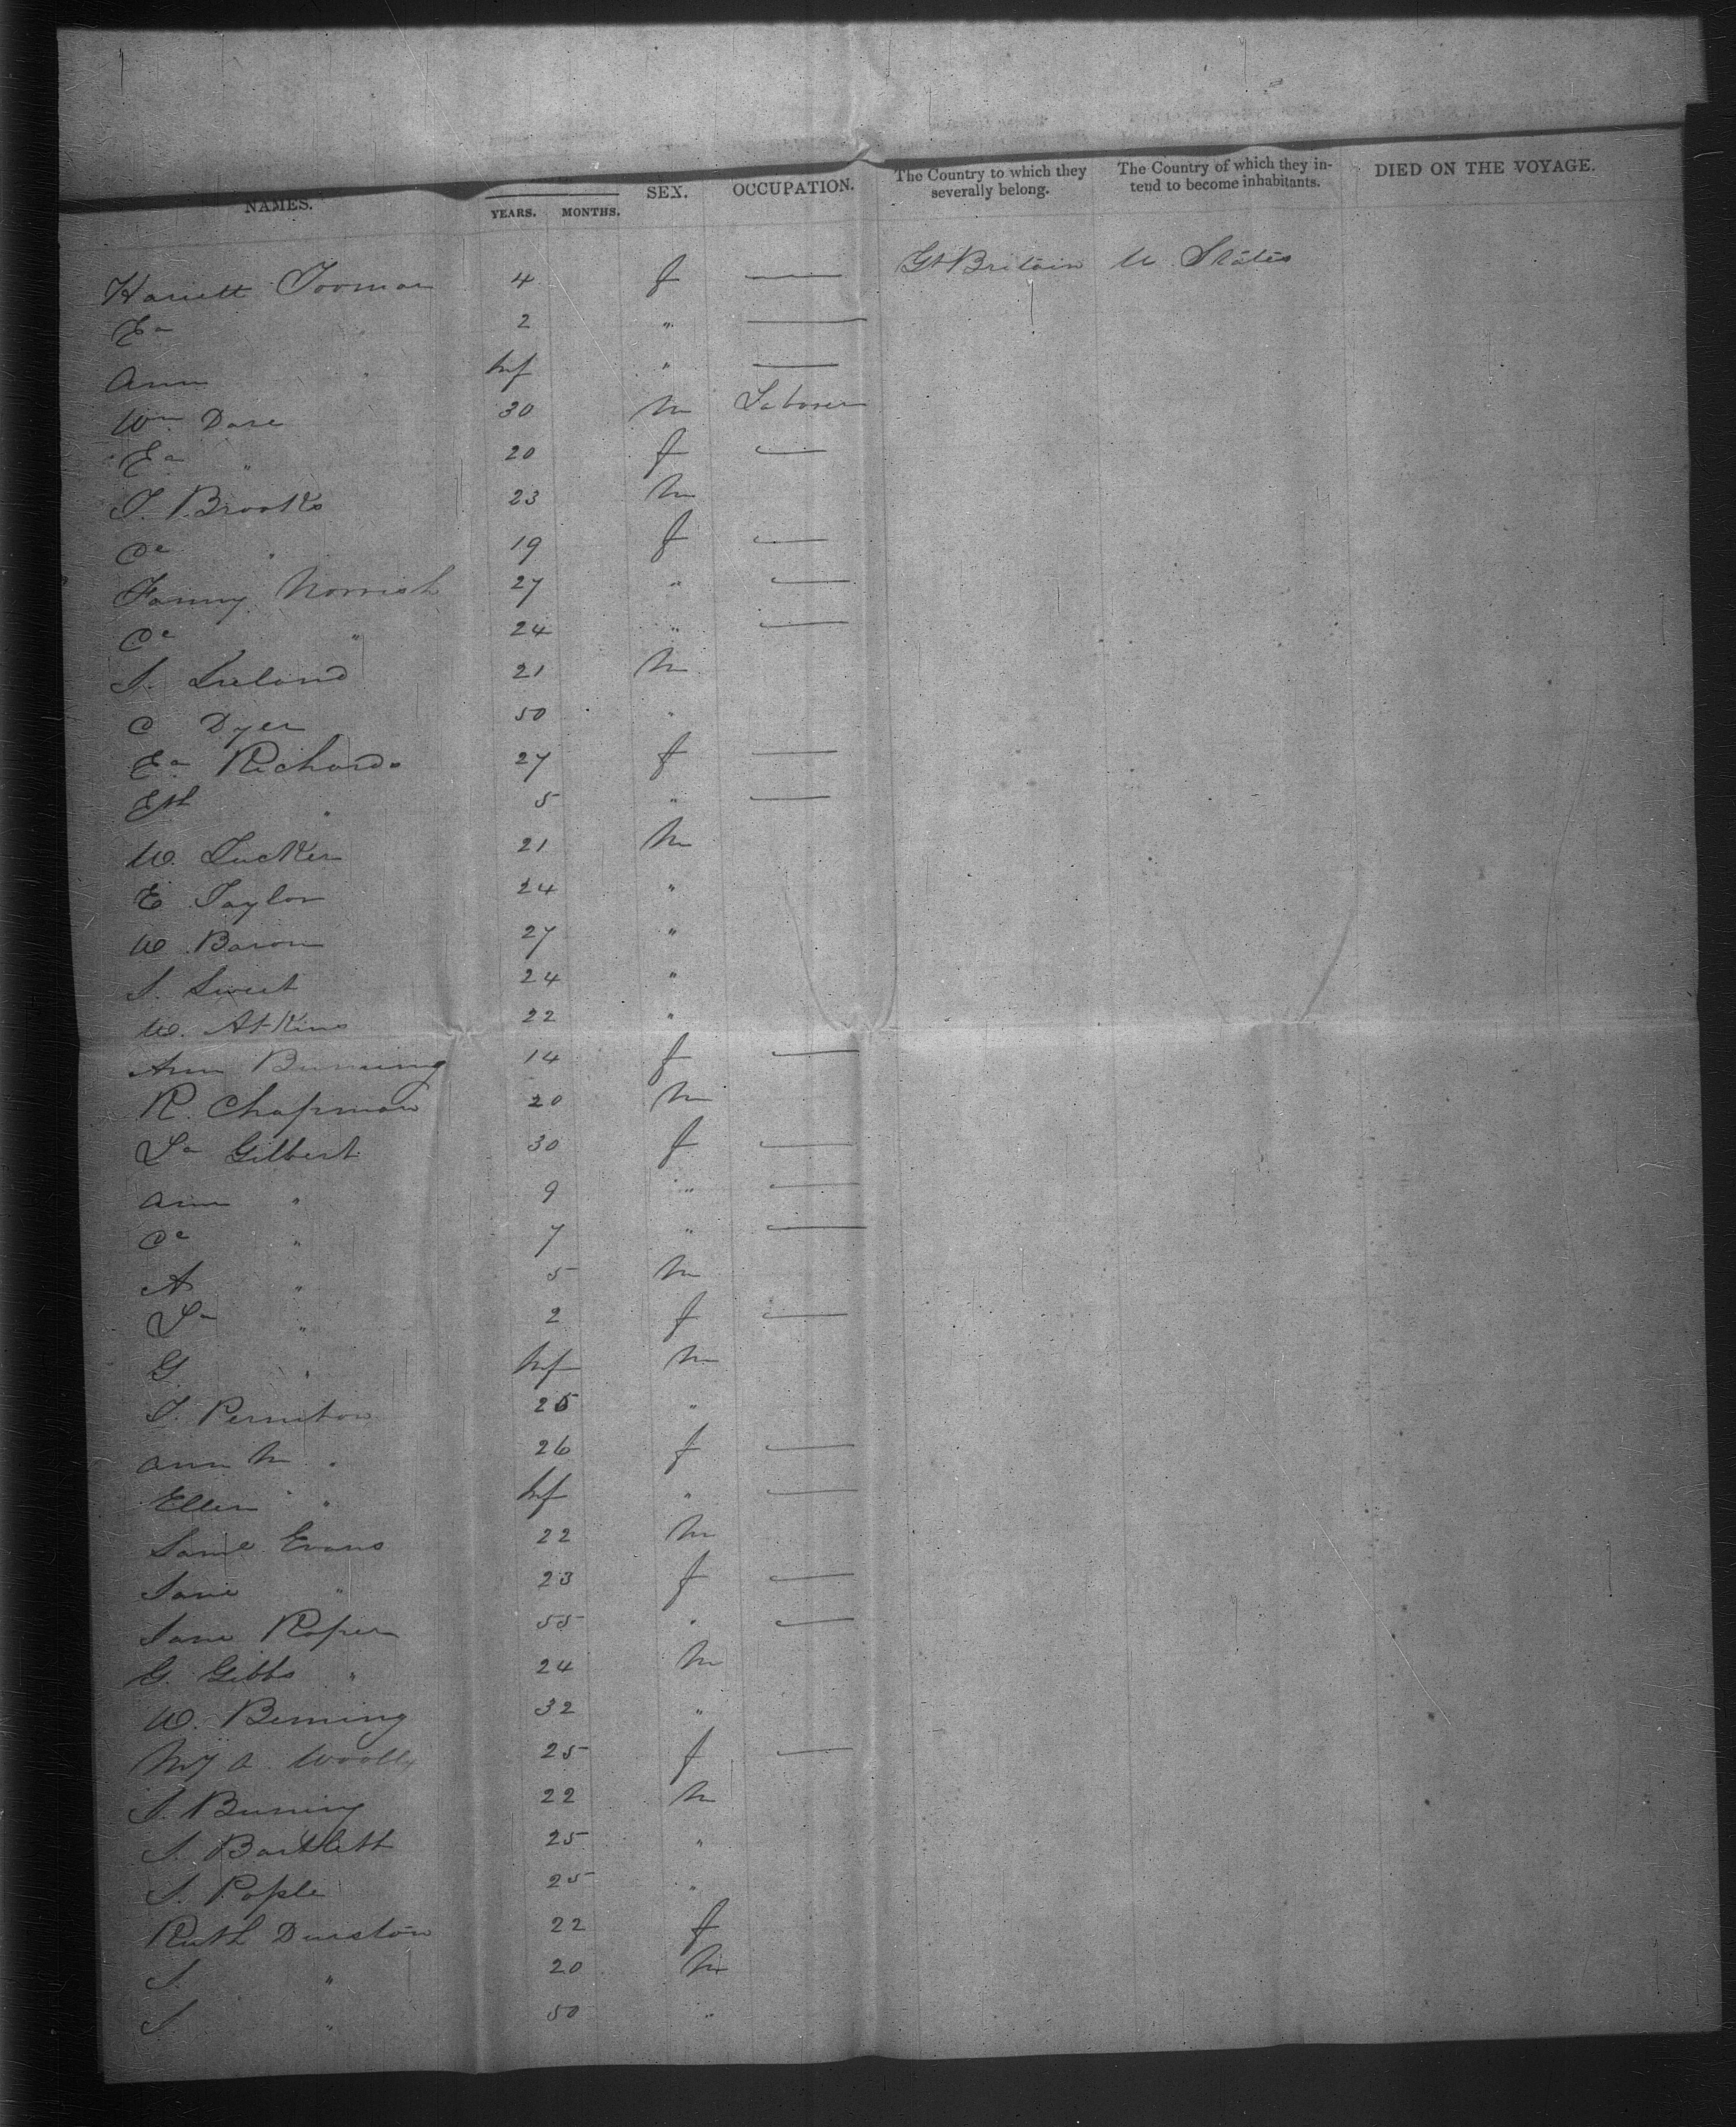 NAMES. YEARS. MONTHS. SEX. OCCUPATION. The Country to which they severally belong. The Country of which they intend to become inhabitants. DIED ON THE VOYAGE.
Hariett Tooman 4 f — Gt Britain U. States
Ea 2 " —
Ann Inf " —
Wm Dare 30 M Laborer
Ea " 20 f —
T. Brooks 23 M
Ce " 19 f —
Fanny Norrish 27 " —
Ce " 24 " —
J. Ireland 21 M
C Dyer 50 "
Ea Richards 27 f —
Eth " 5 " —
W. Tucker 21 M
E Taylor 24 "
W Baron 27 "
S. Sweet 24 "
W. Atkins 22 "
Ann Bunning 14 f —
R. Chapman 20 M
Sa Gilbert 30 f —
Ann " 9 " —
Ce " 7 " —
A " 5 M
Sa " 2 f —
G " Inf M
T. 25 "
Ann M " 26 f —
Ellen " Inf " —
Saml Evans 22 M
Jane " 23 f —
Jane Roper 55 " —
G. Gibbs " 24 M
W. Benning 32 "
My A. Woolly 25 f —
J. Buning 22 M
J. Bartlett 25 "
J. Pople 25 "
Ruth Durston 22 f
J. " 20 M
J. " 50 "